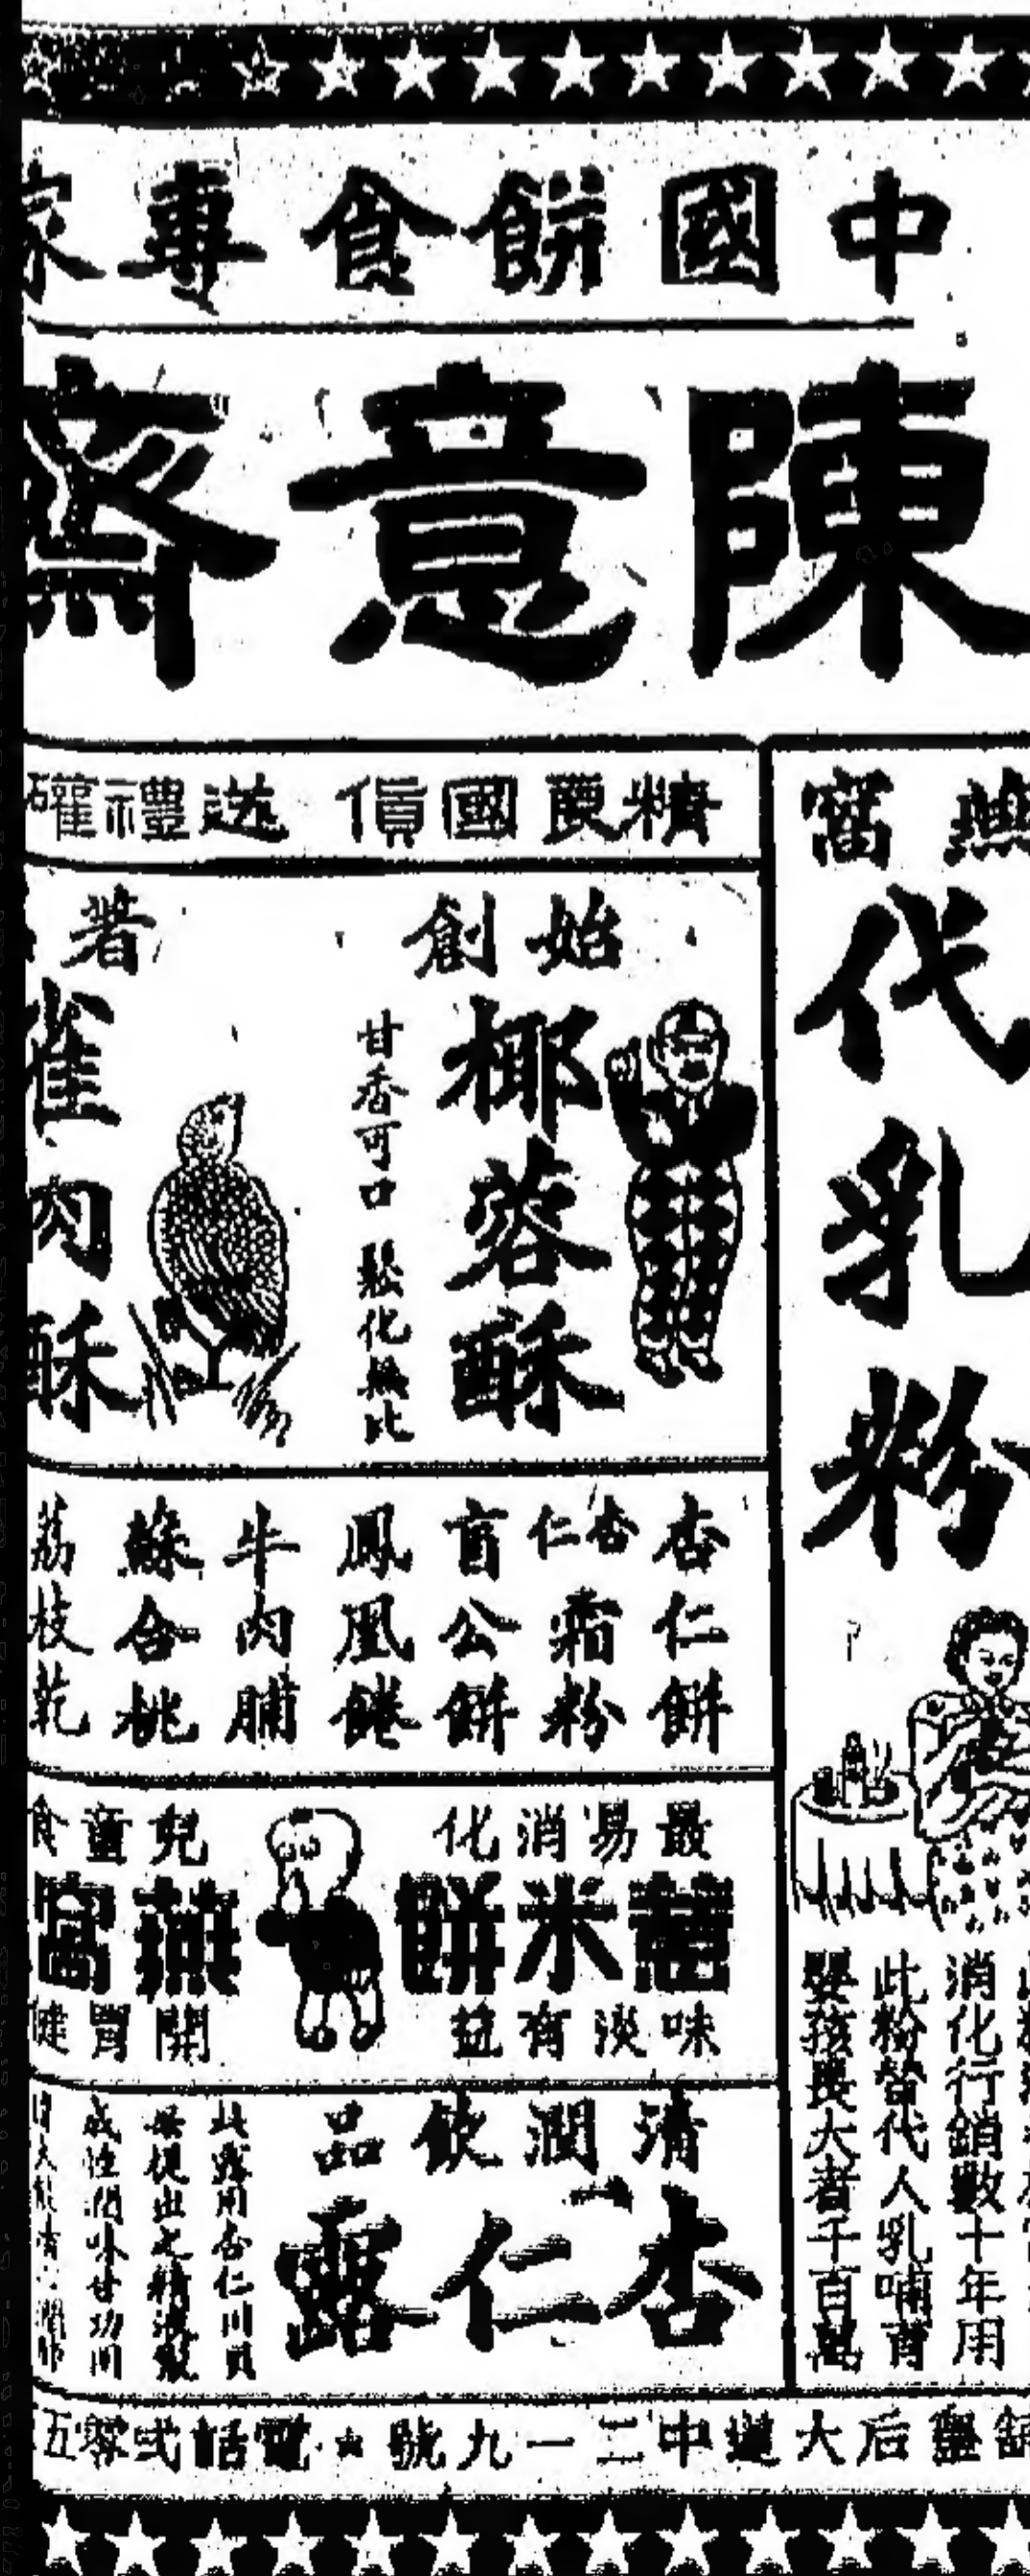 中國餅食專家
陳意齋
燕窩
代乳粉
消化行銷數十年用
此粉替代人乳哺育
嬰孩長大者千百萬
精良國貨 送禮
始創
椰蓉酥
甘香可口 鬆化無比
著
雀肉酥
杏仁餅
杏仁霜粉
盲公餅
鳳凰餞
牛肉脯
蘇合桃
荔枝乾
最易消化
米餅
味淡有益
兒童食
燕窩
開胃健
清潤飲品
杏仁露
此露用杏仁川貝
成性潤味甘功川
舖 皇后大道中二一九號★電話弍零五